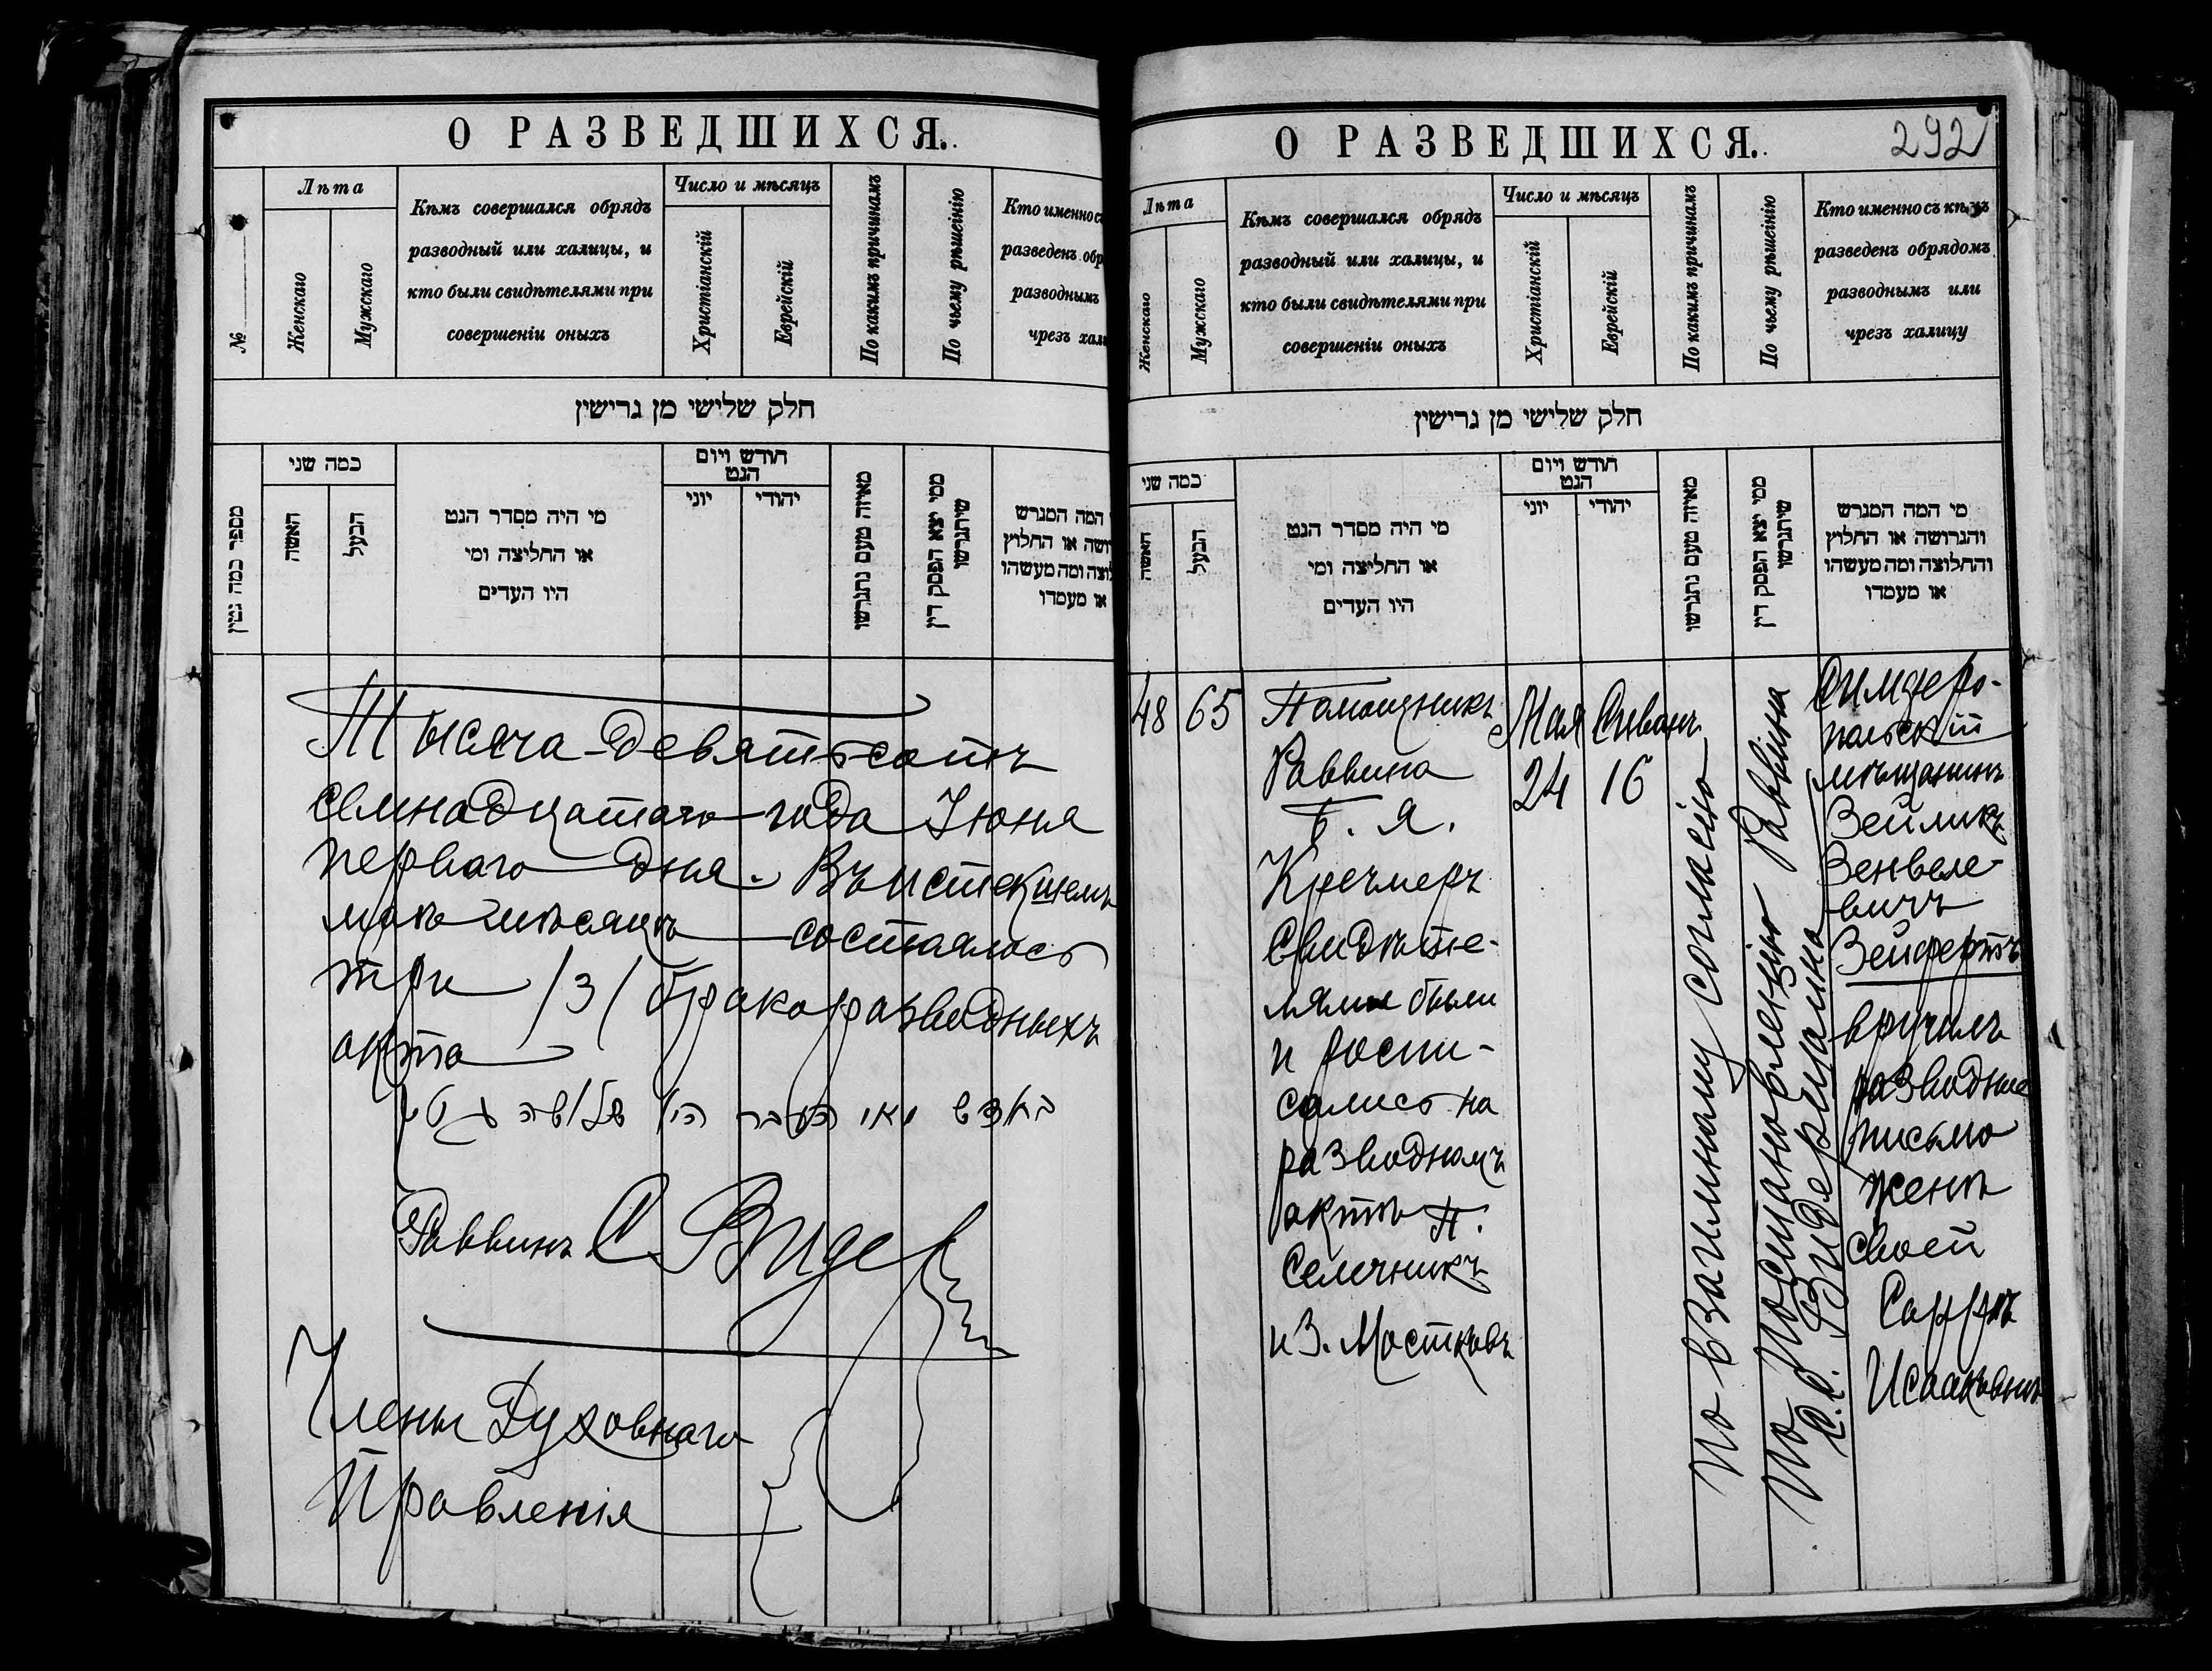 О РАЗВЕДШИХСЯ.
№
Лѣта
Женскаго
Мужскаго
Кѣмъ совершался обрядъ
разводный или халицы, и
кто были свидѣтелями при
совершеніи оныхъ
Число и мѣсяцъ
Христіанскій
Еврейскій
По какимъ причинамъ
По чьему рѣшеінію
Кто именно съ
разведенъ обр
разводнымъ
чрезъ хал
חלק שלישי מן גרישין
מספר כמה גטין
כמה שני
האשה
הבעל
מי היה מסדר הגט
או החליצה ומי
היו העדים
חודש ויום
הגט
יוני
יהודי
מאיזה טעם נתגרשו
ממי יצא הפסק דין
שיתגרשו
המה המגרש
ושה או החלוץ
לוצה ומה מעשהו
או מעמדו
Тысяча девятьсотъ
семнадцатаго года Іюня
перваго дня. Въ истекшемъ
маѣ мѣсяцѣ состоялось
три /3/ бракоразводныхъ
акта
בחדש מאי העבר היו שלשה גטין
Раввинъ С Видер
Члены Духовнаго
Правленія
О РАЗВЕДШИХСЯ.
292
Лѣта
Женскаго
Мужскаго
Кѣмъ совершался обрядъ
разводный или халицы, и
кто были свидѣтелями при
совершеніи оныхъ
Число и мѣсяцъ
Христіанскій
Еврейскій
По какимъ причинамъ
По чьему рѣшеінію
Кто именно съ кѣмъ
разведенъ обрядомъ
разводнымъ или
чрезъ халицу
חלק שלישי מן גרישין
כמה שני
האשה
הבעל
מי היה מסדר הגט
או החליצה ומי
היו העדים
חודש ויום
הגט
יוני
יהודי
מאיזה טעם נתגרשו
ממי יצא הפסק דין
שיתגרשו
מי המה המגרש
והגרושה או החלוץ
והחלוצה ומה מעשהו
או מעמדו
48
65
Помощникъ
Раввина
Б. Я.
Кречмеръ
Свидѣте-
лями были
и роспи-
сались на
разводномъ
актѣ П.
Семечникъ
и З. Мостковъ
Мая
24
Сиванъ
16
По взаимному согласію
По постановленію Раввина
С. С. Видермана
Симферо-
польскій
мѣщанинъ
Зейликъ
Зенвеле-
вичъ
Зейфертъ
вручилъ
разводное
письмо
женѣ
своей
Саррѣ
Исааковнѣ